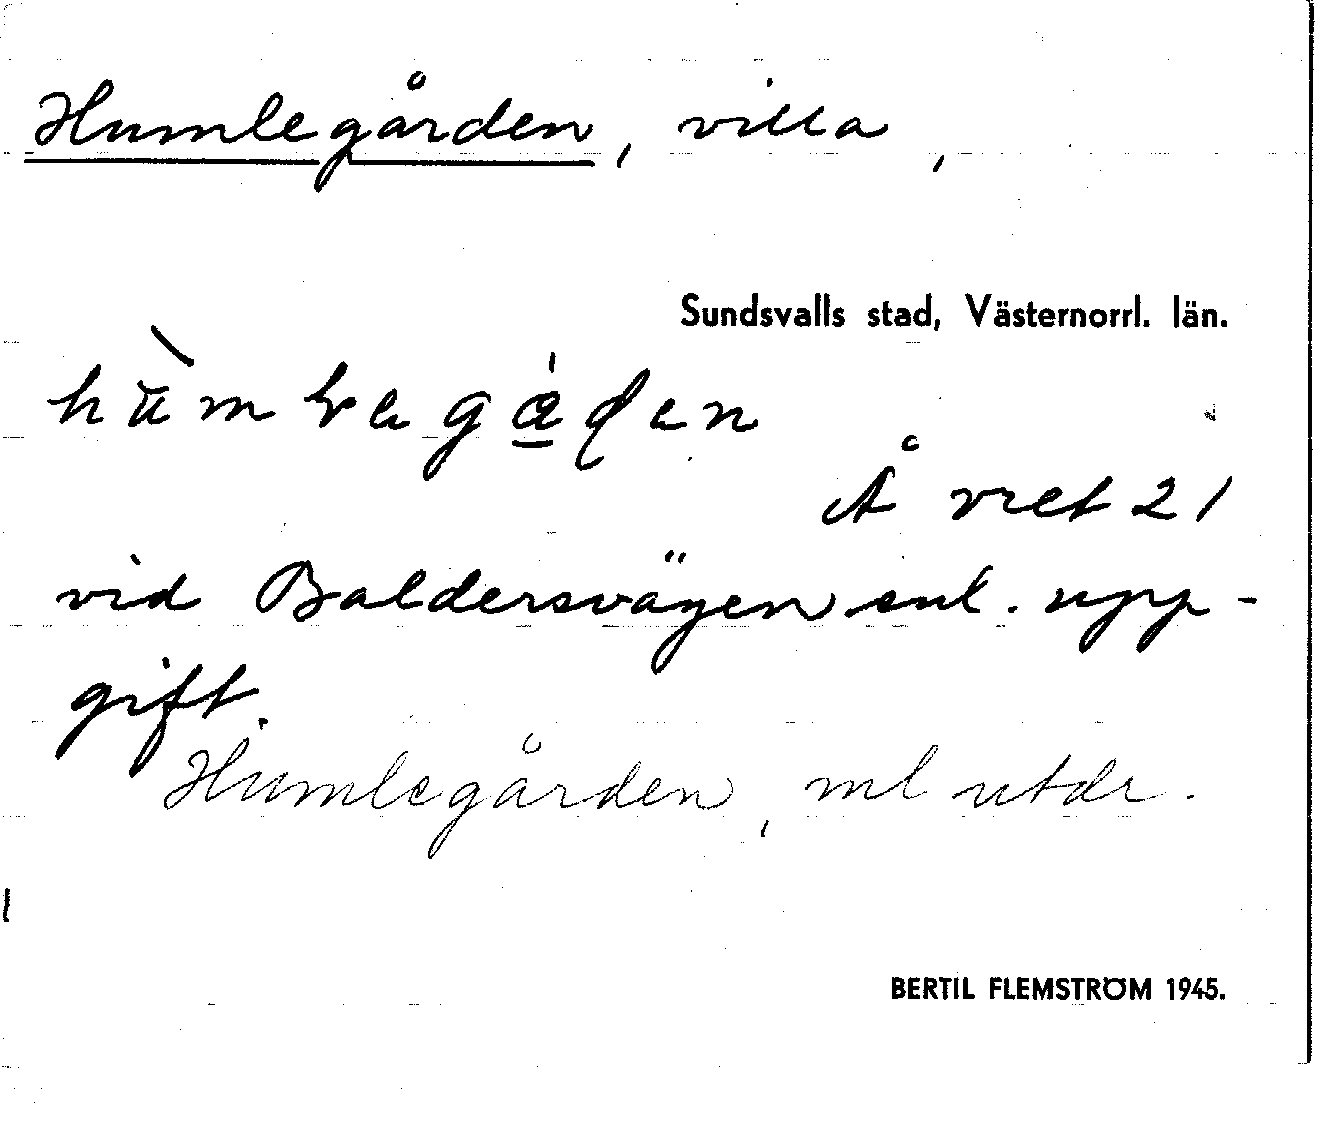 Humlegården, villa,
Sundsvalls stad, Västernorrl. län.
Åvret 21
vid Baldersvägen enl. upp-
gift.
Humlegården, ml utdr.
BERTIL FLEMSTRÖM 1945.